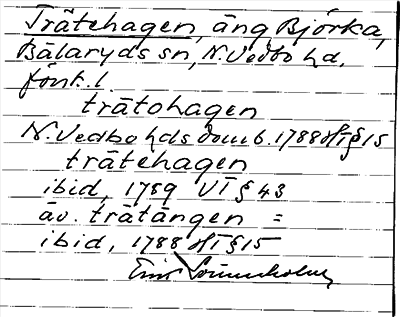 Trätehagen, äng Björka,
Bälaryds sn, N. Vedbo hd,
Jönk. l.
trätohagen
N. Vedbo hds domb. 1788 VI § 15
trätehagen
ibid, 1789 VI § 43
äv. trätängen =
ibid, 1788 VI § 15